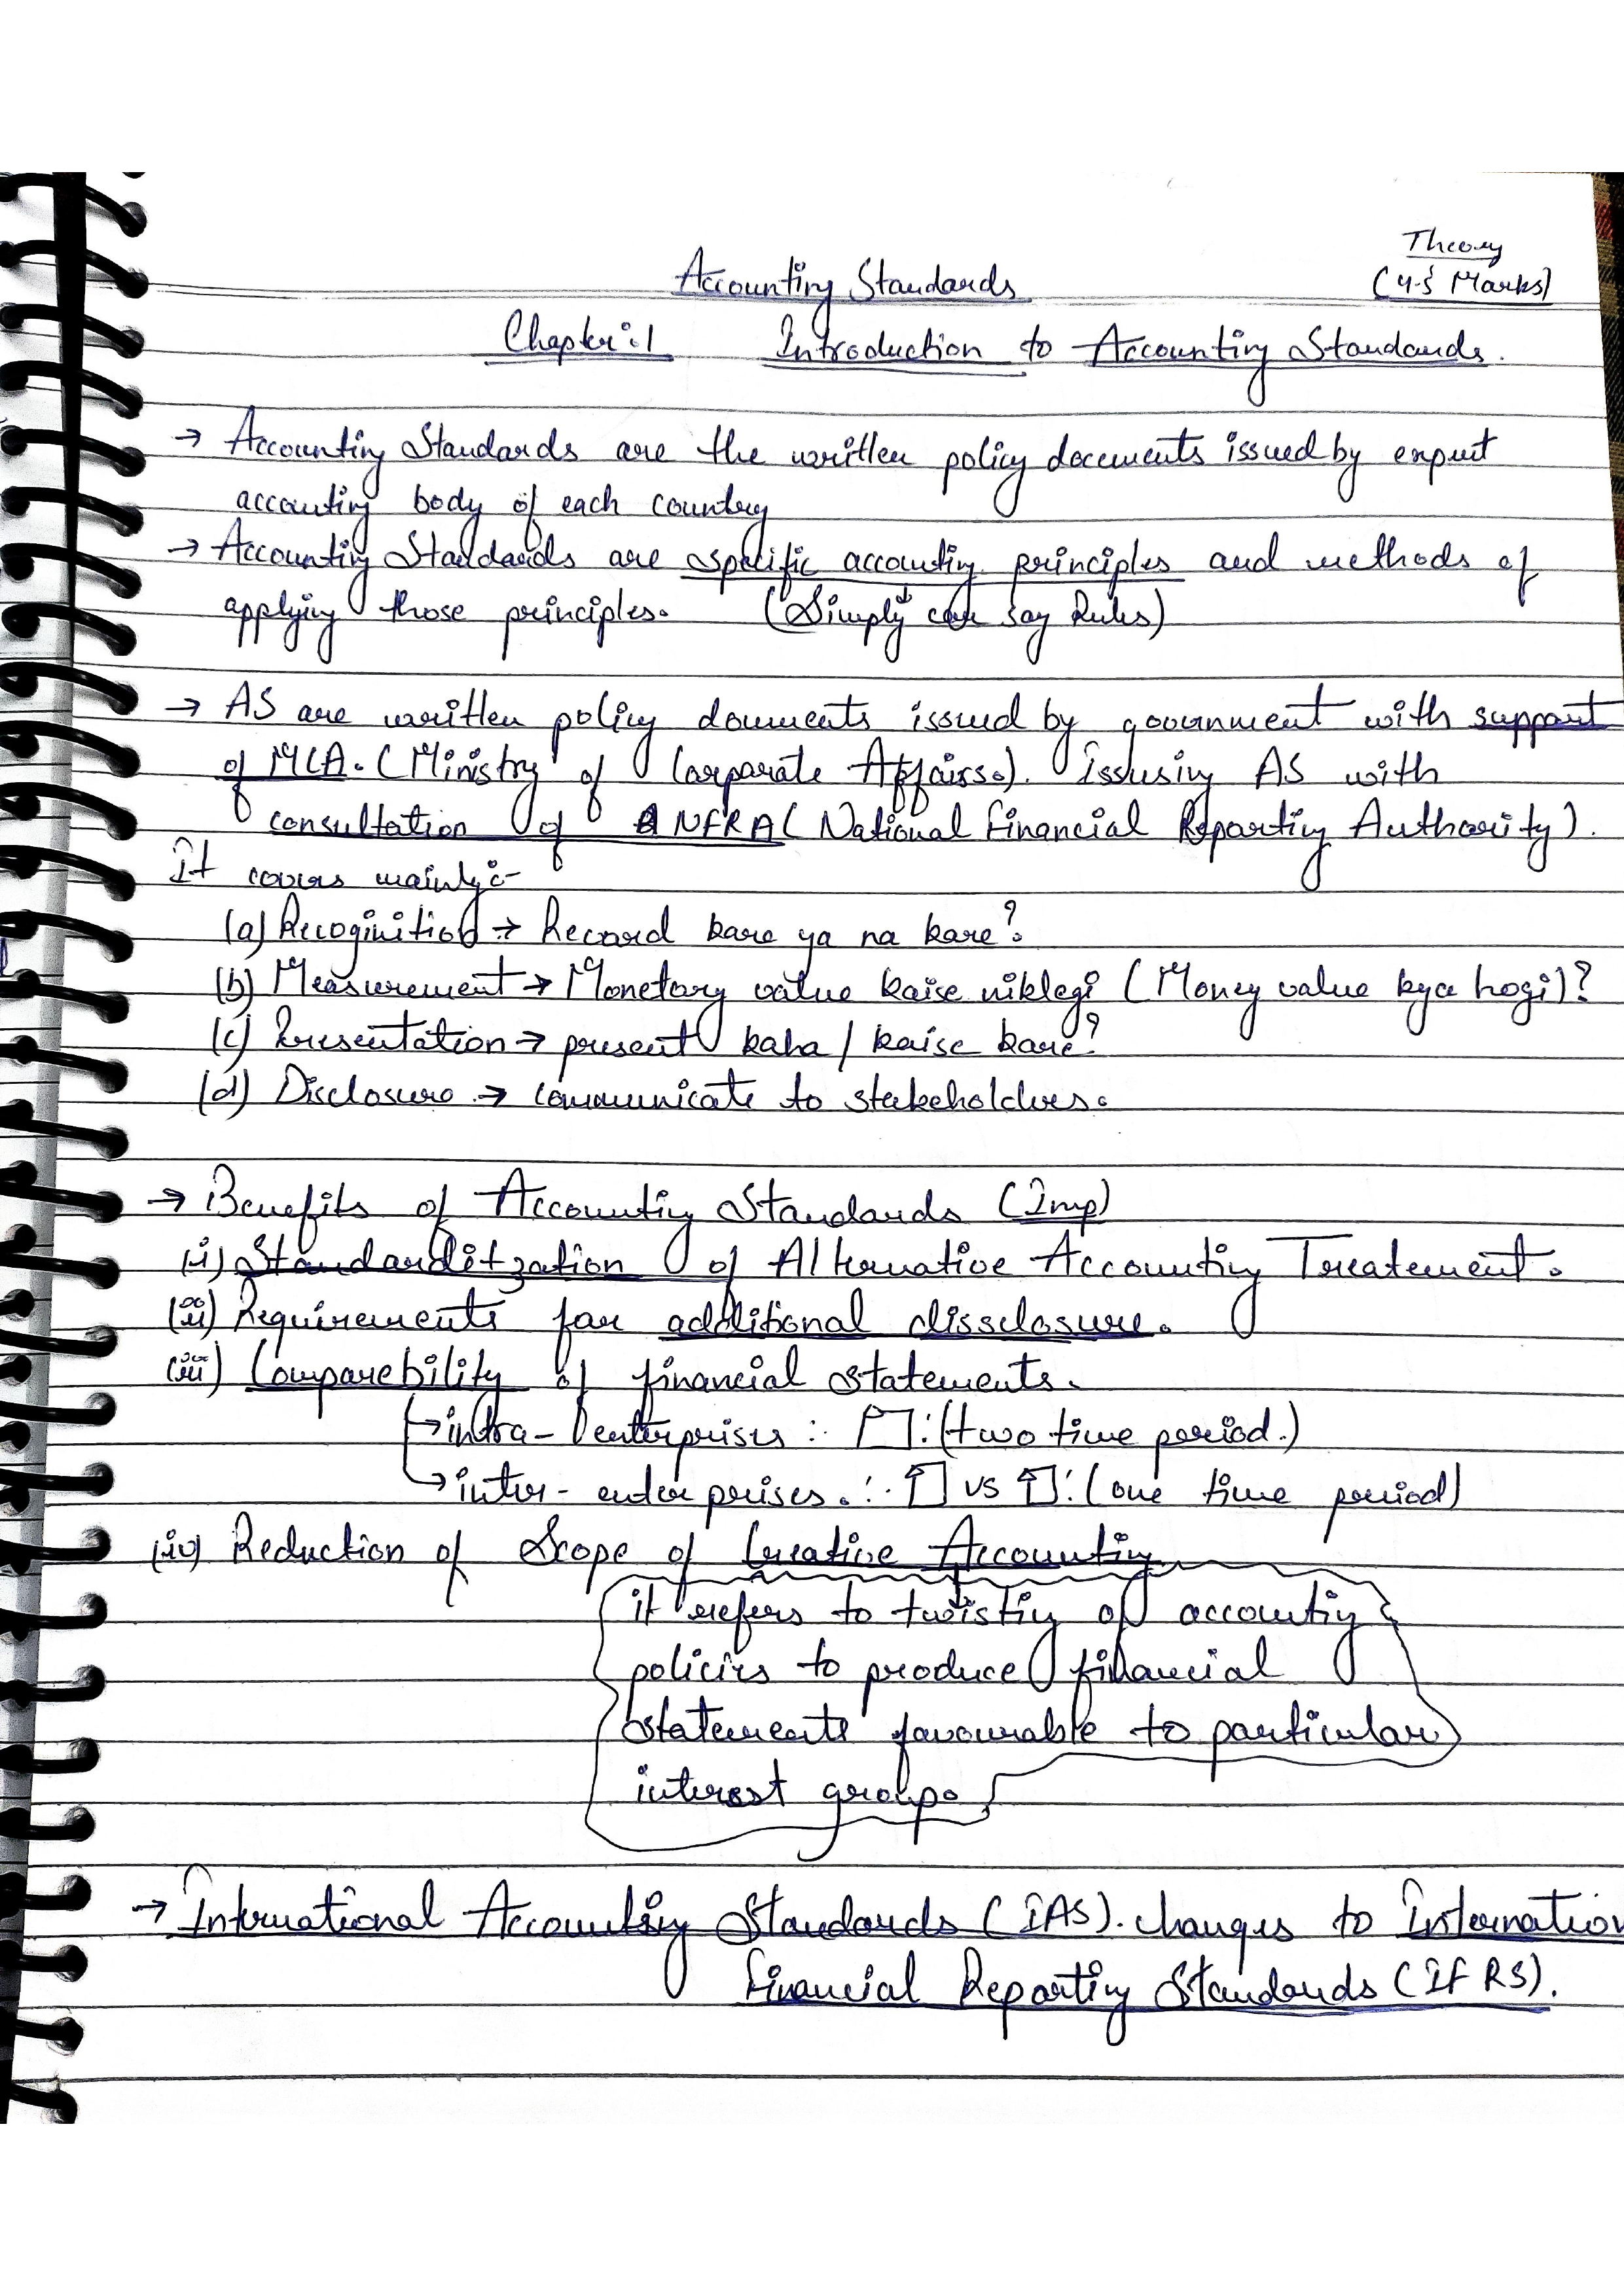 Theory
(4-5 Marks)
Accounting Standards
Chapter:1 Introduction to Accounting Standards.
→ Accounting Standards are the written policy documents issued by expert
accounting body of each country
→ Accounting Standards are specific accounting principles and methods of
applying those principles. (Simply can say Rules)
→ AS are written policy documents issued by government with support
of MCA. (Ministry of Corporate Affairs.). Issusing AS with
consultation of NFRA (National Financial Reporting Authority).
It covers mainly:-
(a) Recoginition → Record kare ya na kare?
(b) Measurement → Monetary value kaise niklegi (Money value kya hogi)?
(c) Presentation → present kaha / kaise kare?
(d) Disclosure → communicate to stakeholders.
→ Benefits of Accounting Standards (Imp)
(i) Standarditzation of Alternative Accounting Treatement.
(ii) Requirements for additional dissclosure.
(iii) Comparebility of financial statements.
→ intra-enterprises : (two time period.)
→ inter-enterprises. : vs : (one time period)
(iv) Reduction of Scope of Creative Accounting
it refers to twisting of accounting
policies to produce financial
statements favourable to particular
interest groups
→ International Accounting Standards (IAS). changes to Internation
Financial Reporting Standards (IFRS).